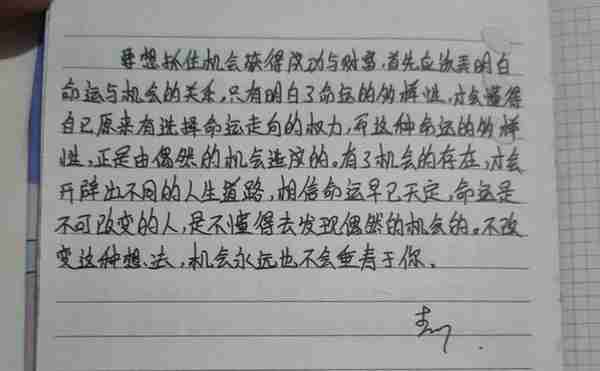 要想抓住机会获得成功与财富,首先应该弄明白
命运与机会的关系,只有明白了命运的多样性,才会懂得
自己原来有选择命运走向的权力,而这种命运的多样
性,正是由偶然的机会造成的。有了机会的存在,才会
开辟出不同的人生道路,相信命运早已天定,命运是
不可改变的人,是不懂得去发现偶然的机会的。不改
变这种想法,机会永远也不会垂青于你。